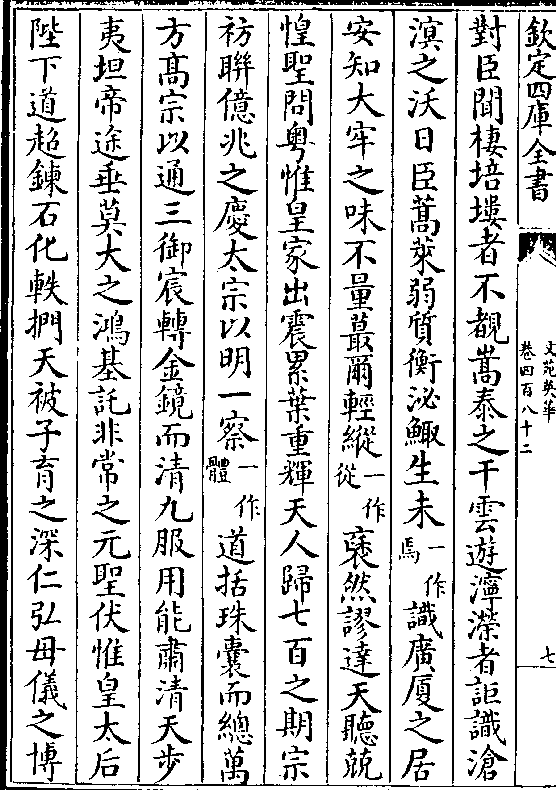 欽定四庫全書
文苑英華
卷四百八十二
七
對臣聞棲培塿者不覩嵩泰之干雲遊濘滎者詎識滄
溟之沃日臣蒿萊弱質衡泌鯫生未一作焉識廣厦之居
安知大牢之味不量蕞爾輕縱一作從褎然謬達天聽兢
惶聖問粤惟皇家出震累葉重輝天人歸七百之期宗
祊聯億兆之慶太宗以明一察一作體道括珠囊而總萬
方髙宗以通三御宸轉金鏡而清九服用能肅清天步
夷坦帝途垂莫大之鴻基託非常之元聖伏惟皇太后
陛下道超鍊石化軼捫天被子育之深仁弘母儀之博